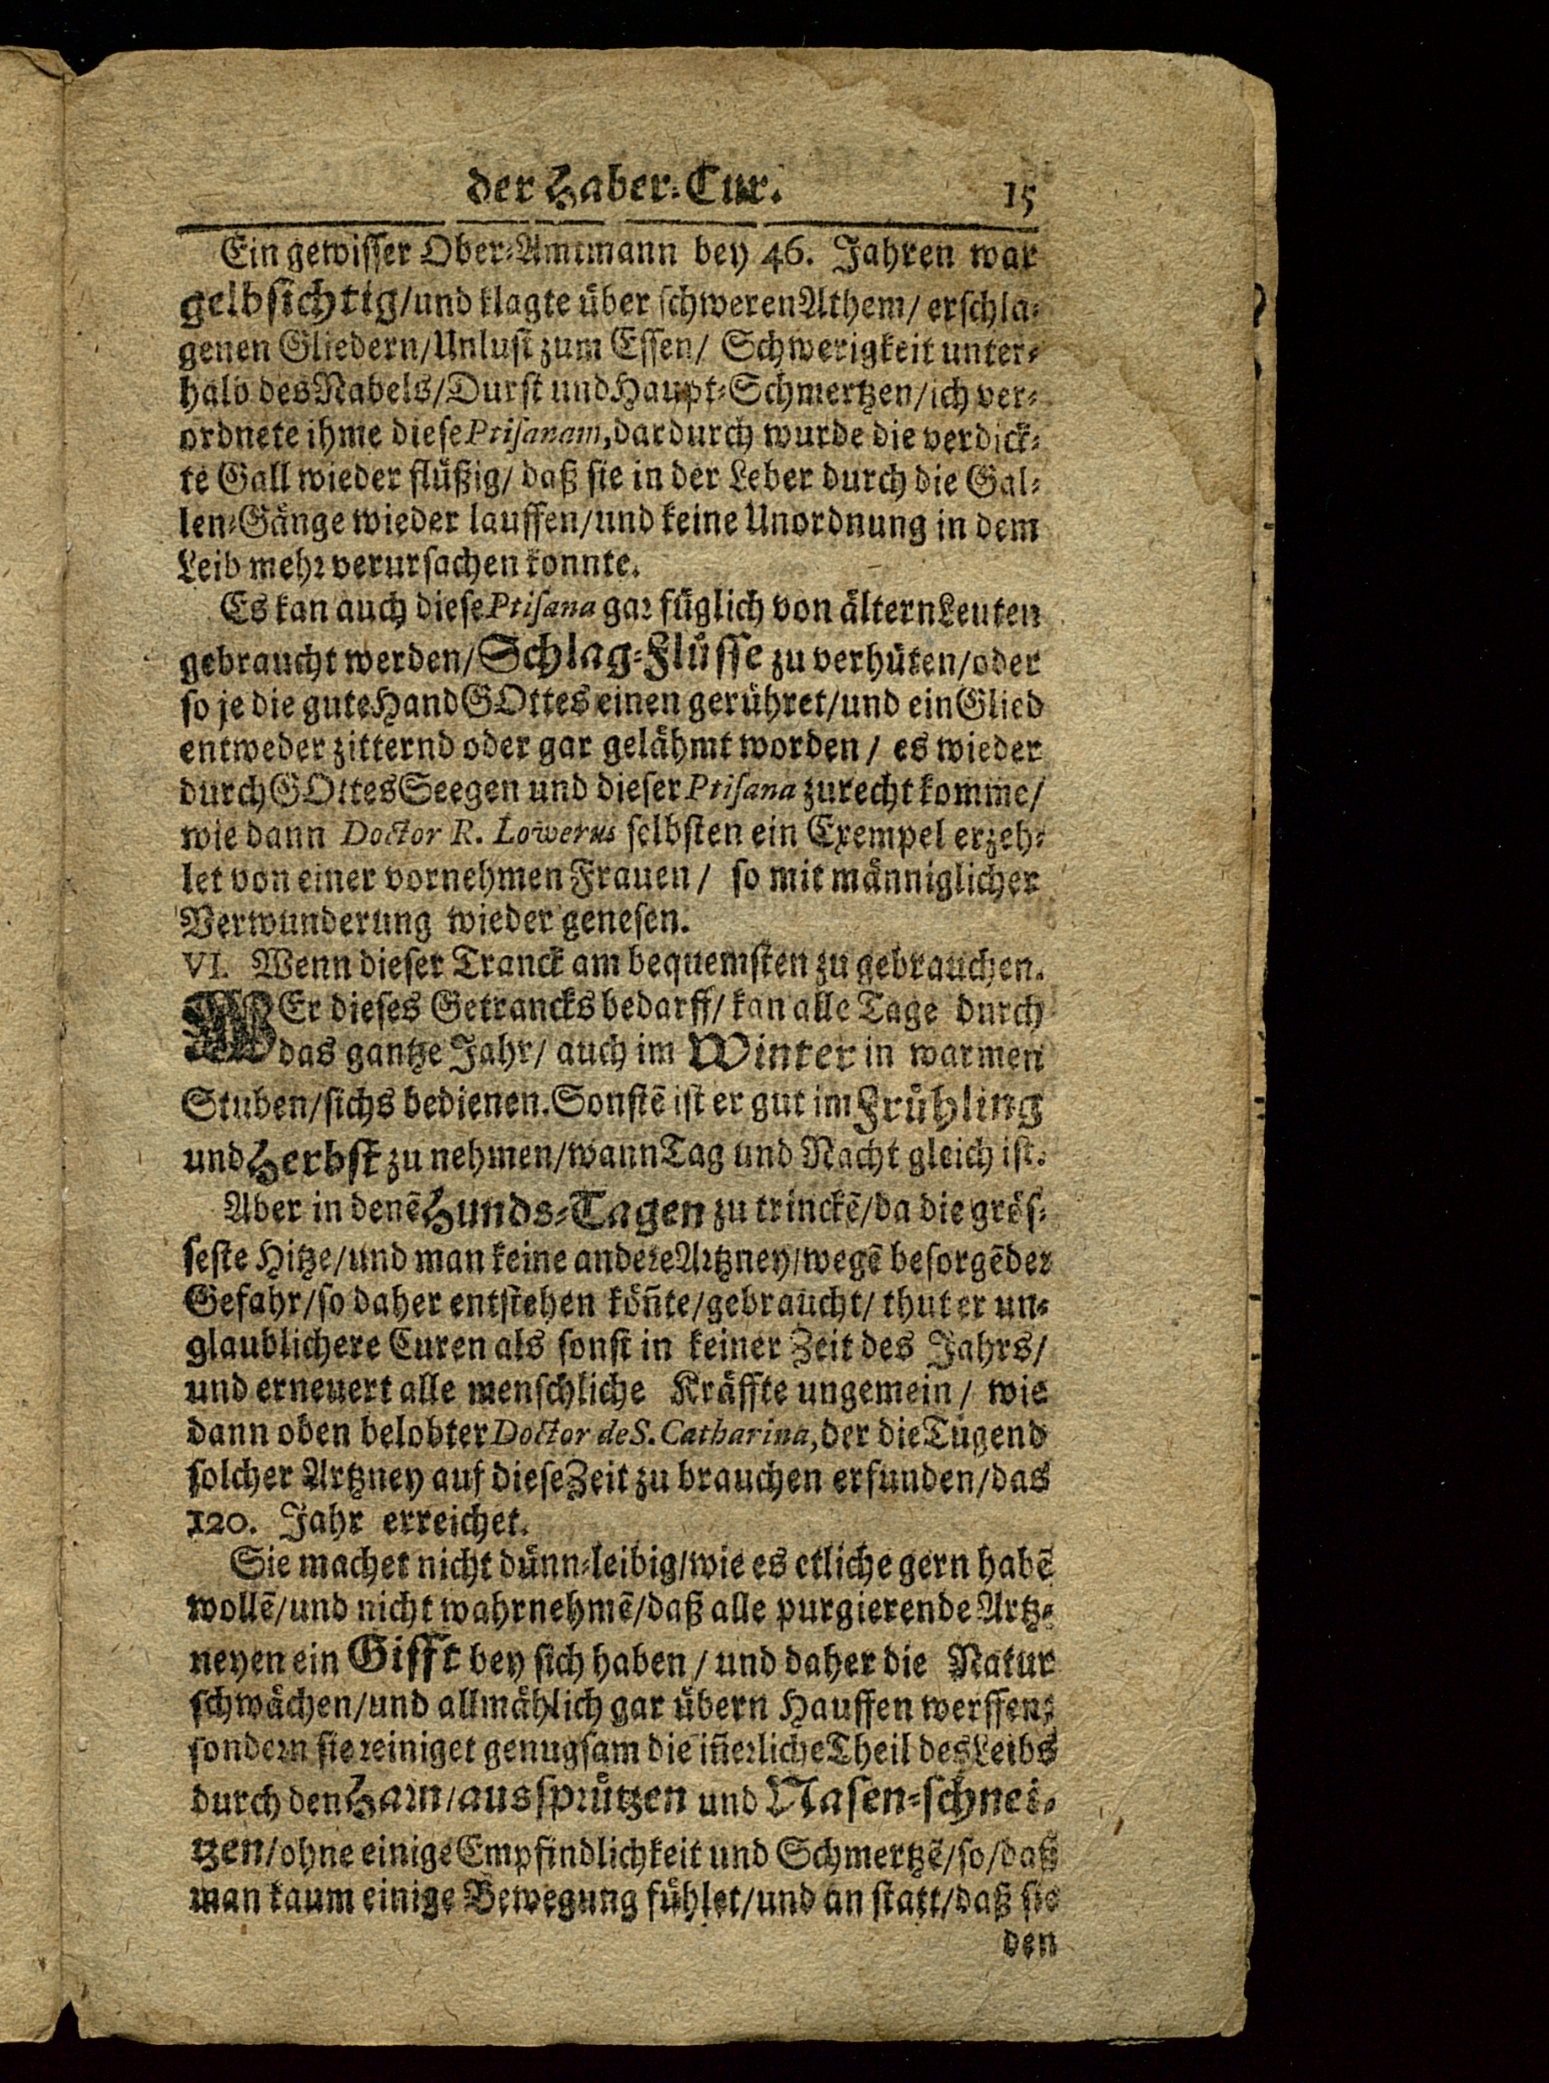 der Haber-Cur. 15
Ein gewisser Ober-Amtmann bey 46. Jahren war
gelbsichtig/und klagte über schweren Athem/ erschla-
genen Gliedern/Unlust zum Essen/ Schwerigkeit unter-
halb des Nabels/Durst und Haupt-Schmertzen/ich ver-
ordnete ihme diese Ptisanam, dardurch wurde die verdick-
te Gall wieder flüßig/ daß sie in der Leber durch die Gal-
len-Gänge wieder lauffen/und keine Unordnung in dem
Leib mehr verursachen konnte.
Es kan auch diese Ptisana gar füglich von ältern Leuten
gebraucht werden/Schlag-Flüsse zu verhüten/oder
so je die gute Hand GOttes einen gerühret/und ein Glied
entweder zitternd oder gar gelähmt worden/ es wieder
durch GOttes Seegen und dieser Ptisana zurecht komme/
wie dann Doctor R. Lowerus selbsten ein Exempel erzeh-
let von einer vornehmen Frauen/ so mit männiglicher
Verwunderung wieder genesen.
VI. Wenn dieser Tranck am bequemsten zu gebrauchen.
WEr dieses Getrancks bedarff/ kan alle Tage durch
das gantze Jahr/ auch im Winter in warmen
Stuben/sichs bedienen. Sonstē ist er gut im Frühling
und Herbst zu nehmen/wann Tag und Nacht gleich ist.
Aber in denē Hunds-Tagen zu trinckē/da die grös-
seste Hitze/und man keine andere Artzney/wegē besorgēder
Gefahr/so daher entstehen kön̄te/gebraucht/ thut er un-
glaublichere Curen als sonst in keiner Zeit des Jahrs/
und erneuert alle menschliche Kräffte ungemein/ wie
dann oben belobter Doctor de S. Catharina, der die Tugend
solcher Artzney auf diese Zeit zu brauchen erfunden/das
120. Jahr erreichet.
Sie machet nicht dünn-leibig/wie es etliche gern habē
wollē/und nicht wahrnehmē/daß alle purgierende Artz-
neyen ein Gifft bey sich haben/ und daher die Natur
schwächen/und allmählich gar übern Hauffen werffen;
sondern sie reiniget genugsam die in̄erliche Theil des Leibs
durch den Harn/aussprützen und Nasen-schnei-
tzen/ohne einige Empfindlichkeit und Schmertzē/so/daß
man kaum einige Bewegung fühlet/und an statt/daß sie
den